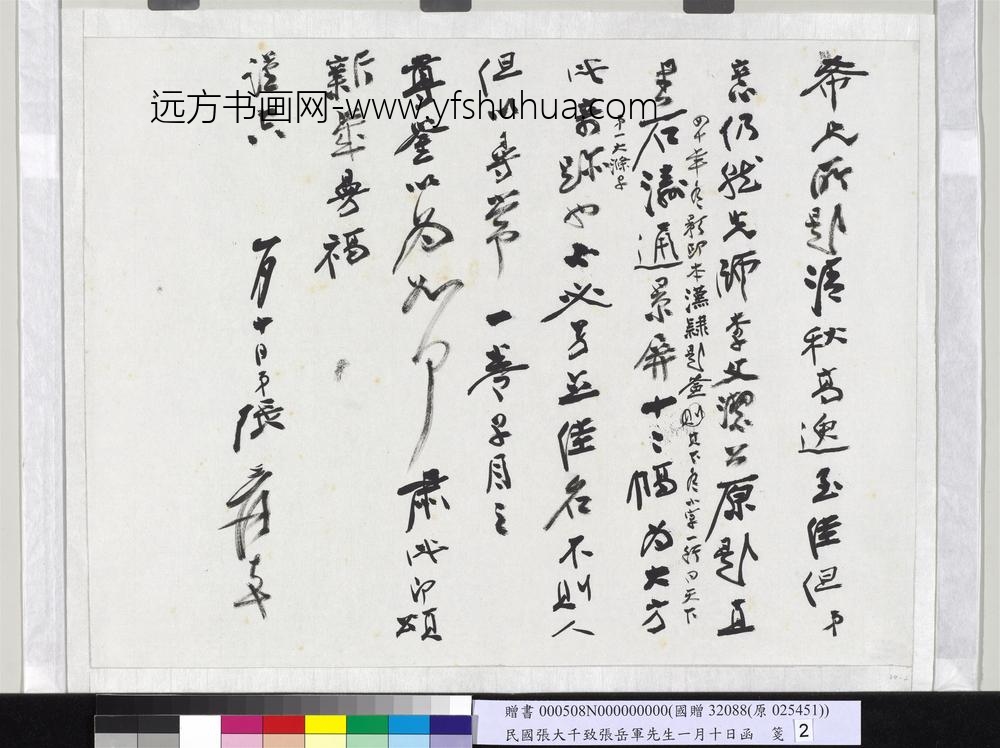 希兄所題清秋高逸至佳但弟
意仍然先師李文潔公原題直
四十年冬影印本漢隸題簽則其下冬小字一行曰天下
第一大滌子
是石濤通景屏十二幅為大方
此奇跡也必必另立佳名不則人
但以尋常一卷子目之
尊鑒以為如何肅此即頌
新年曼福
謹上
一月十日弟張爰
远方书画网-www.yfshuhua.com
贈書 000508N000000000(國贈 32088(原 025451))
民國張大千致張岳軍先生一月十日函 箋 2